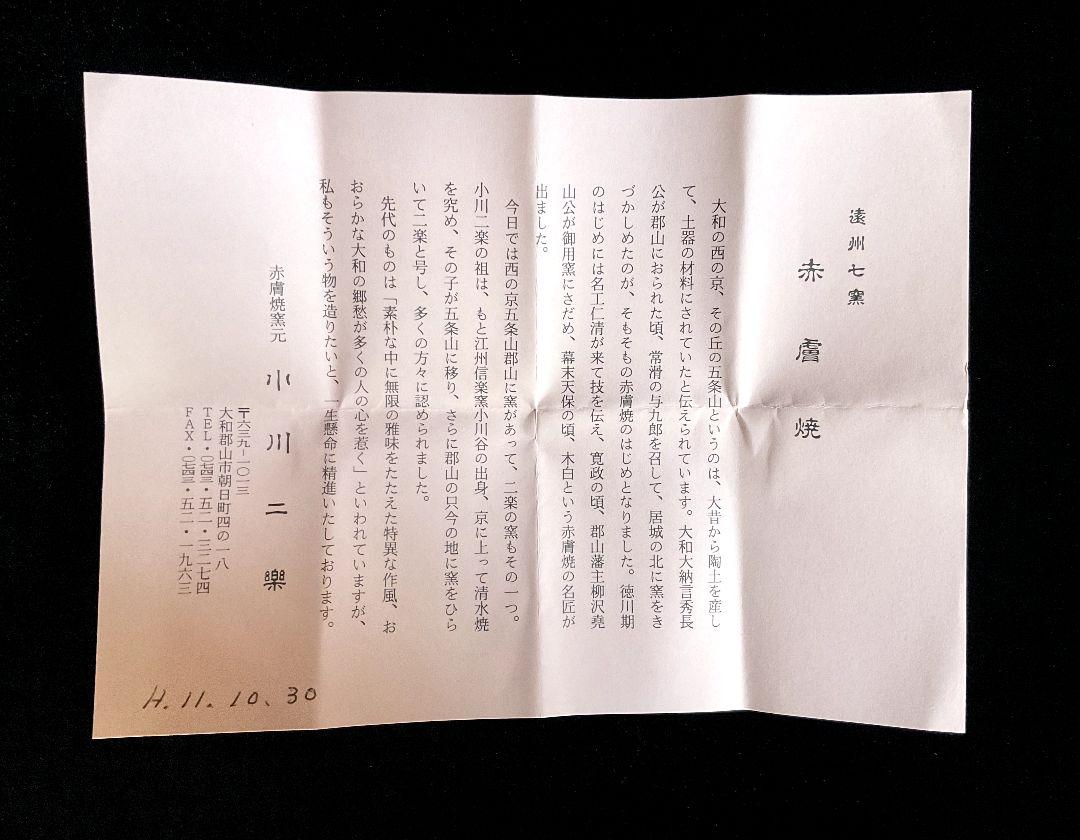 遠州七窯
赤膚焼
大和の西の京、その丘の五条山というのは、大昔から陶土を産し
て、土器の材料にされていたと伝えられています。大和大納言秀長
公が郡山におられた頃、常滑の与九郎を召して、居城の北に窯をき
づかしめたのが、そもそもの赤膚焼のはじめとなりました。徳川期
のはじめには名工仁清が来て技を伝え、寛政の頃、郡山藩主柳沢堯
山公が御用窯にさだめ、幕末天保の頃、木白という赤膚焼の名匠が
出ました。
今日では西の京五条山郡山に窯があって、二楽の窯もその一つ。
小川二楽の祖は、もと江州信楽窯小川谷の出身、京に上って清水焼
を究め、その子が五条山に移り、さらに郡山の只今の地に窯をひら
いて二楽と号し、多くの方々に認められました。
先代のものは「素朴な中に無限の雅味をたたえた特異な作風、お
おらかな大和の郷愁が多くの人の心を惹く」といわれていますが、
私もそういう物を造りたいと、一生懸命に精進いたしております。
赤膚焼窯元 小川二樂
〒六三九-一〇一三
大和郡山市朝日町四の一八
TEL・〇七四三・五二・三二七四
FAX・〇七四三・五二・一九六三
H.11.10、30